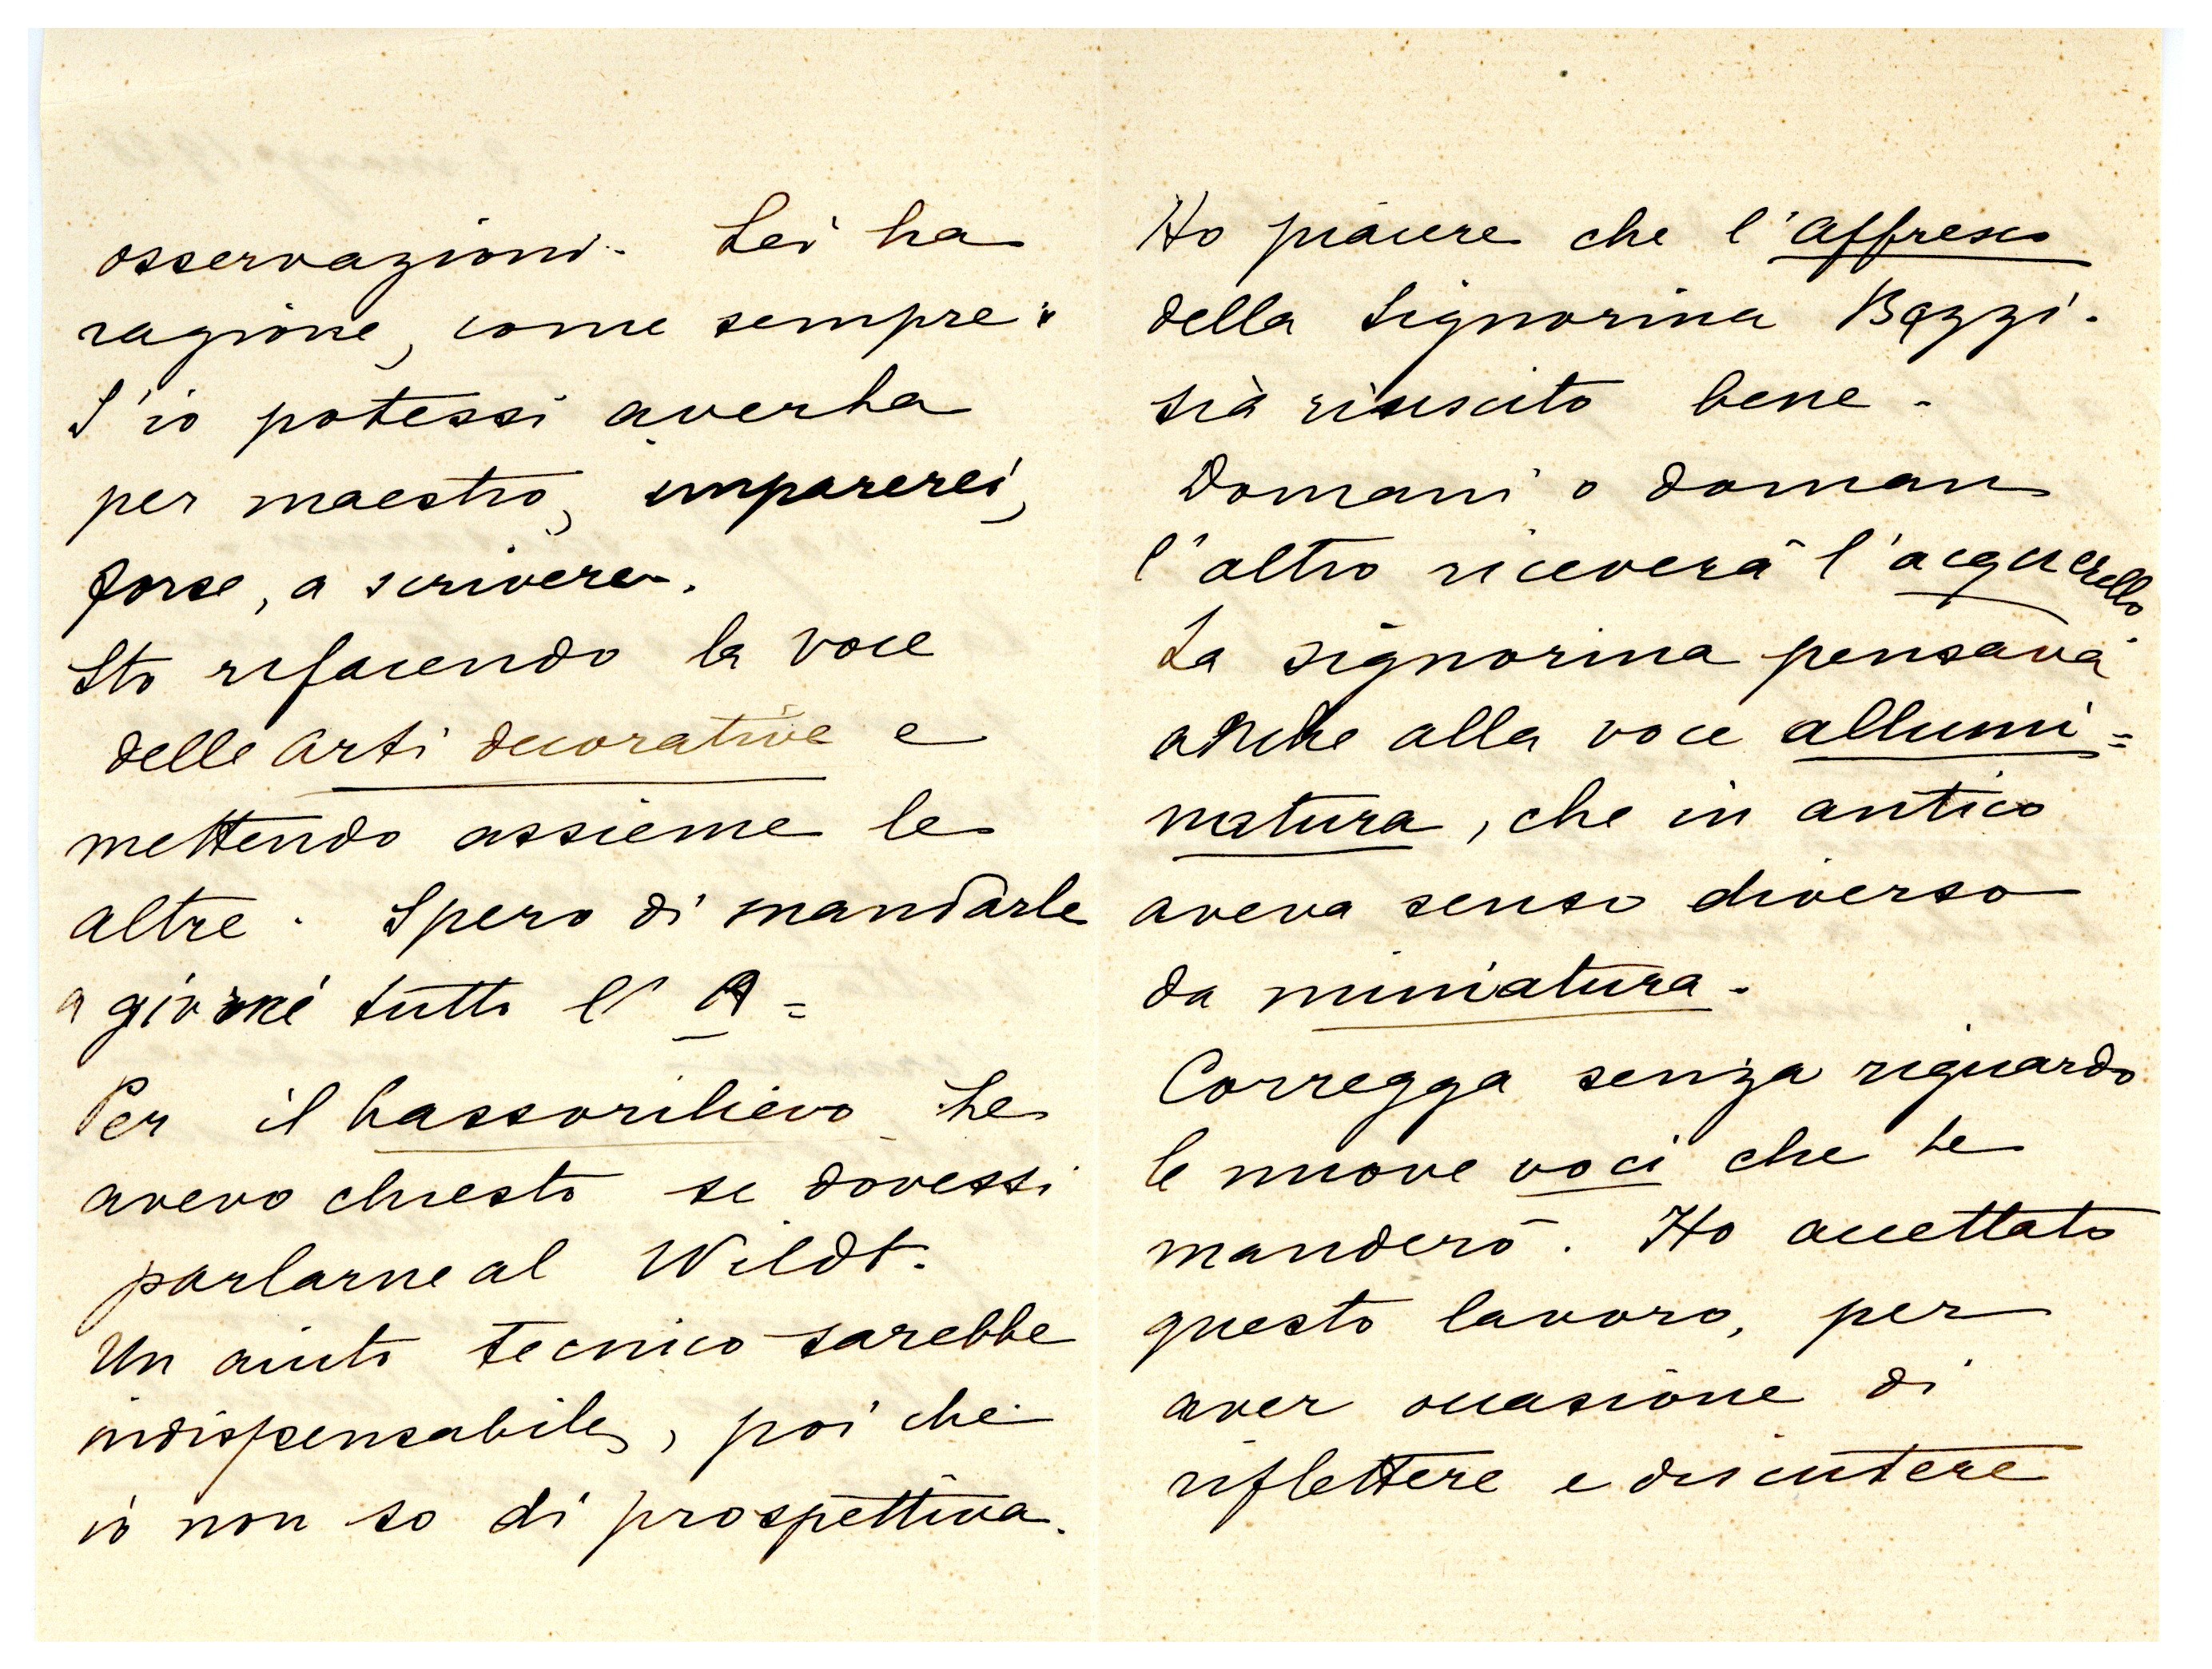 osservazioni. Lei ha
ragione, come sempre.
S'io potessi averLa
per maestro, imparerei,
forse, a scrivere.
Sto rifacendo la voce
delle Arti decorative e
mettendo assieme le
altre. Spero di mandarLe
a giorni tutto l'A=
Per il bassorilievo Le
avevo chiesto se dovessi
parlarne al Wildt.
Un aiuto tecnico sarebbe
indispensabile, poi che
io non so di prospettiva.
Ho piacere che l'affresco
della Signorina Bazzi.
sia riuscito bene.
Domani o doman
l'altro riceverà l'acquerello
La signorina pensava
anche alla voce allumi=
natura, che in antico
aveva senso diverso
da miniatura.
Corregga senza riguardo
le nuove voci che Le
manderò. Ho accettato
questo lavoro, per
aver occasione di
riflettere e discutere